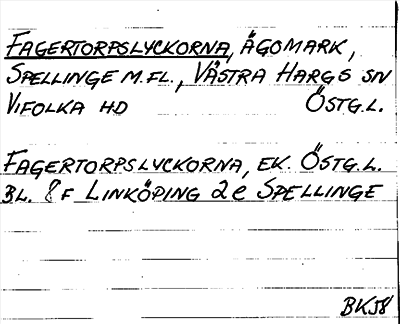 FAGERTORPSLYCKORNA, ÄGOMARK,
SPELLINGE M.FL., VÄSTRA HARGS SN
VIFOLKA HD ÖSTG.L.
FAGERTORPSLYCKORNA, EK. ÖSTG.L.
BL. 8F LINKÖPING 2e SPELLINGE
BKJ8